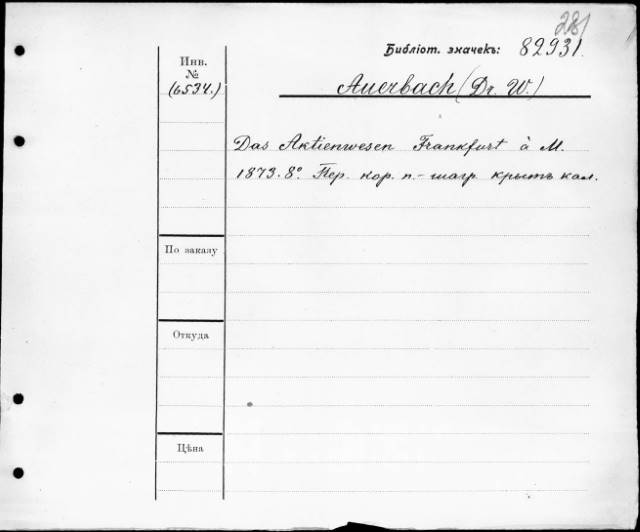 281
Библіот. значекъ: 82931.
Инв.
№
(6534.)
Auerbach (Dr. W.)
Das Aktienwesen Frankfurt à M.
1873. 8º. Пер. кор. п.-шагр. крытъ кал.
По заказу
Откуда
Цѣна